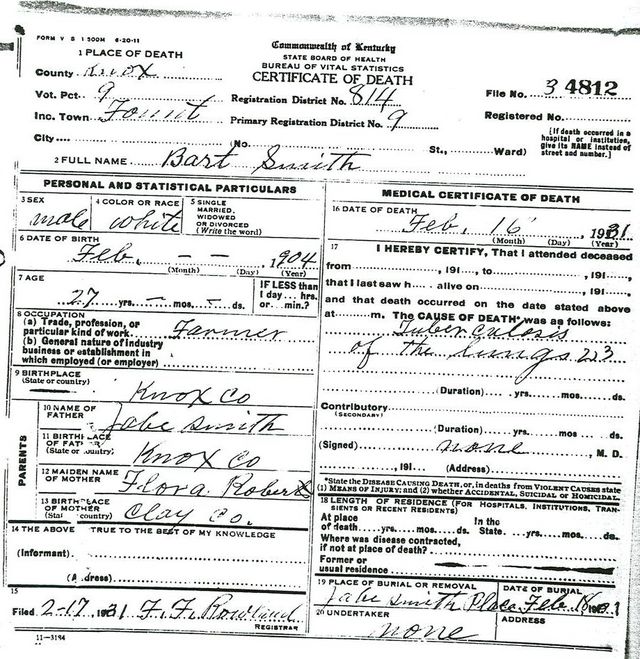 FORM V S 1 500M 6-20-11
Commonwealth of Kentucky
STATE BOARD OF HEALTH
BUREAU OF VITAL STATISTICS
CERTIFICATE OF DEATH
1 PLACE OF DEATH
County Knox
Vot. Pct. 9
Registration District No. 814
File No. 3 4812
Inc. Town Fount
Primary Registration District No. 9
Registered No.
City (No. St., Ward)
[If death occurred in a hospital or institution, give its NAME instead of street and number.]
2 FULL NAME Bart Smith
PERSONAL AND STATISTICAL PARTICULARS
3 SEX male
4 COLOR OR RACE white
5 SINGLE MARRIED, WIDOWED OR DIVORCED (Write the word)
6 DATE OF BIRTH
Feb. — — 1904
(Month) (Day) (Year)
7 AGE
27 yrs. — mos. — ds.
IF LESS than 1 day... hrs. or... min.?
8 OCCUPATION
(a) Trade, profession, or particular kind of work Farmer
(b) General nature of industry business or establishment in which employed (or employer)
9 BIRTHPLACE
(State or country) Knox Co
PARENTS
10 NAME OF FATHER Jabe Smith
11 BIRTHPLACE OF FATHER (State or country) Knox Co
12 MAIDEN NAME OF MOTHER Flora Roberts
13 BIRTHPLACE OF MOTHER (State or country) Clay Co.
14 THE ABOVE TRUE TO THE BEST OF MY KNOWLEDGE
(Informant)
(Address)
15
Filed 2-17 1931 F. F. Rowland
REGISTRAR
11-3194
MEDICAL CERTIFICATE OF DEATH
16 DATE OF DEATH
Feb. 16 1931
(Month) (Day) (Year)
17 I HEREBY CERTIFY, That I attended deceased
from , 191 , to , 191 ,
that I last saw h alive on , 191 ,
and that death occurred on the date stated above
at m. The CAUSE OF DEATH* was as follows:
Tuberculosis
of the lungs 23
(Duration) yrs. mos. ds.
Contributory
(SECONDARY)
(Duration) yrs. mos. ds.
(Signed) none , M. D.
, 191 (Address)
*State the DISEASE CAUSING DEATH, or, in deaths from VIOLENT CAUSES state (1) MEANS OF INJURY; and (2) whether ACCIDENTAL, SUICIDAL or HOMICIDAL.
18 LENGTH OF RESIDENCE (FOR HOSPITALS, INSTITUTIONS, TRANSIENTS OR RECENT RESIDENTS)
At place of death yrs. mos. ds. In the State yrs. mos. ds.
Where was disease contracted, if not at place of death?
Former or usual residence
19 PLACE OF BURIAL OR REMOVAL
Jabe Smith Place
DATE OF BURIAL
Feb 18 1931
20 UNDERTAKER
none
ADDRESS